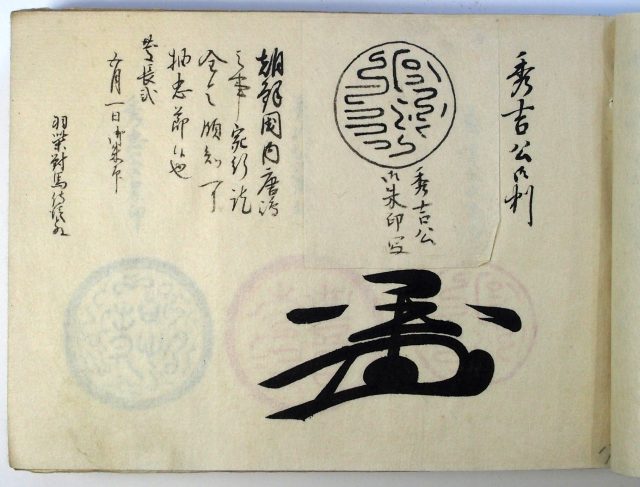 秀吉公御判
秀吉公
御朱印写
朝鮮国内唐嶋
之事宛行訖
全令領知可
抽忠節候也
慶長弐
五月一日御朱印
羽柴対馬侍従殿